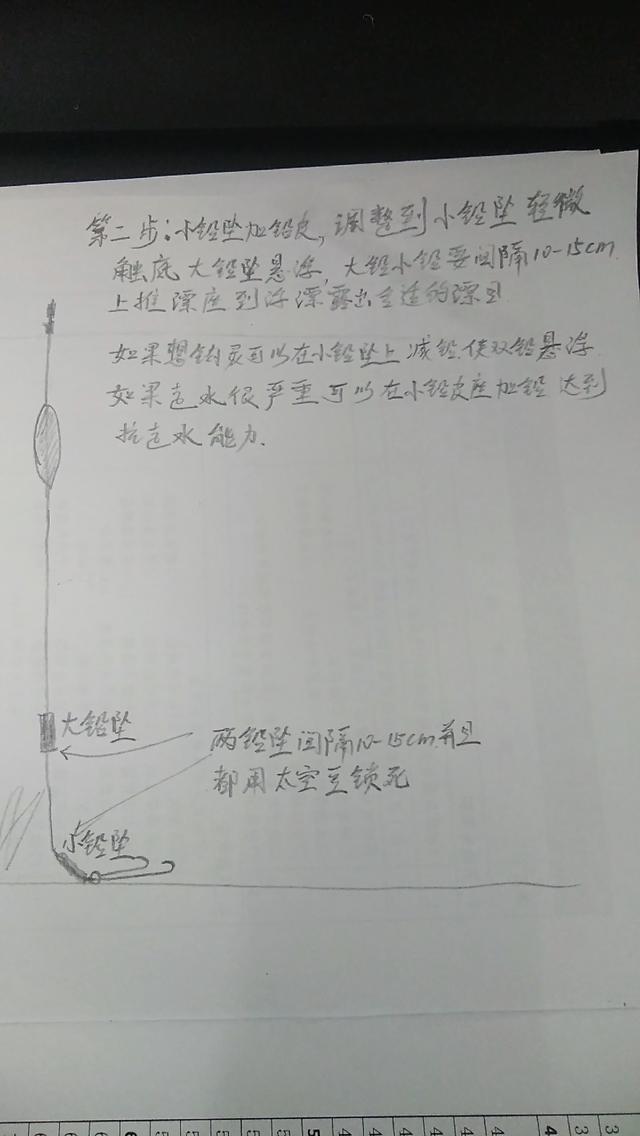 第二步:小铅坠加铅皮,调整到小铅坠轻微
触底大铅坠悬浮,大铅小铅要间隔10-15cm
上推漂座到浮漂露出合适的漂目
如果想钓灵可以在小铅坠上减铅使双铅悬浮
如果走水很严重可以在小铅皮座加铅达到
抗走水能力.
大铅坠
两铅坠间隔10-15cm并且
都用太空豆锁死
小铅坠
6 6 6 5 5 5 5 5 4 4 4 4 4 4 3 3